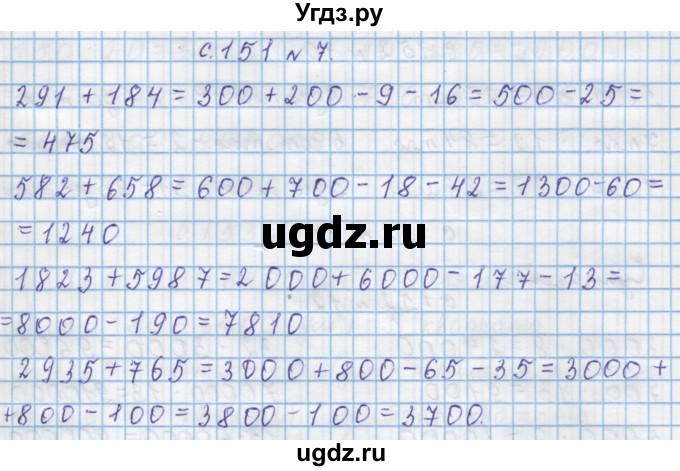 Угдз.ру
с.151 № 7.
291 + 184 = 300 + 200 - 9 - 16 = 500 - 25 =
= 475
582 + 658 = 600 + 700 - 18 - 42 = 1300 - 60 =
= 1240
ugdz.ru
1823 + 5987 = 2000 + 6000 - 177 - 13 =
= 8000 - 190 = 7810
2935 + 765 = 3000 + 800 - 65 - 35 = 3000 +
+ 800 - 100 = 3800 - 100 = 3700.
ugdz.ru